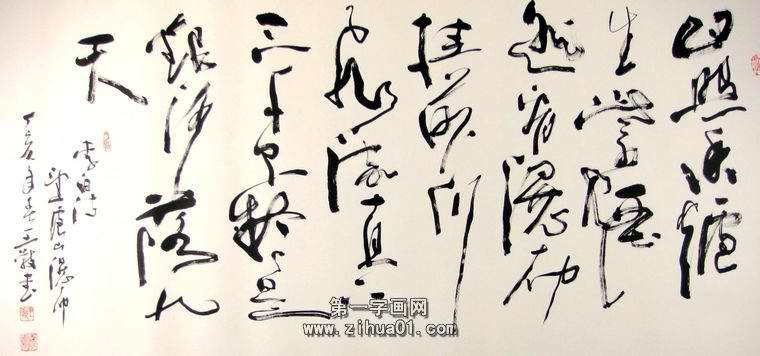 日照香爐
生紫煙
遥看瀑布
挂前川
飛流直下
三千尺疑是
銀河落九
天
李白诗
望廬山瀑布
丁亥年春王書
第一字画网
www.zihua01.com